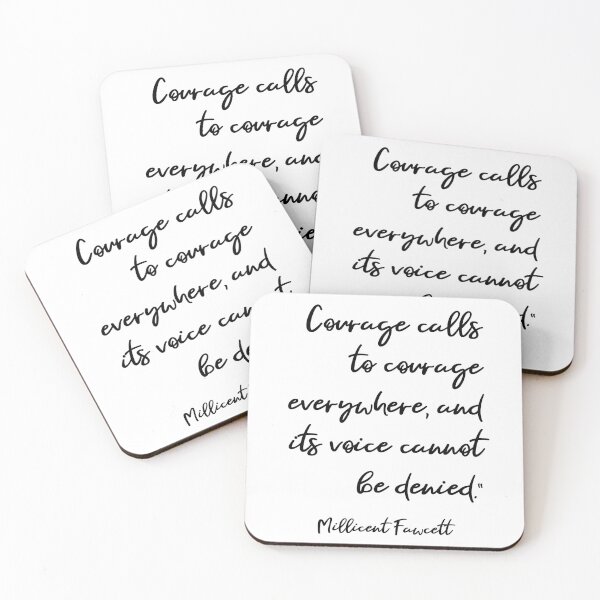 Courage calls
to courage
everywhere, and
cannot
Courage calls
to courage
everywhere, and
its voice cannot
Courage calls
to courage
everywhere, and
its voice cannot
be
Millicent
Courage calls
to courage
everywhere, and
its voice cannot
be denied."
Millicent Fawcett